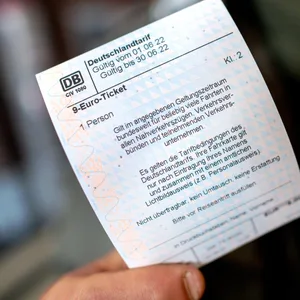 Deutschlandtarif
Gültig vom 01.06.22
Gültig bis 30.06.22
DB
CIV 1080
9-Euro-Ticket
Kl. 2
1 Person
Gilt im angegebenen Geltungszeitraum
bundesweit für beliebig viele Fahrten in
allen Nahverkehrszügen, Verkehrsver-
bünden und teilnehmenden Verkehrs-
unternehmen.
Es gelten die Tarifbedingungen des
Deutschlandtarifs. Ihre Fahrkarte gilt
nur nach Eintragung Ihres Namens
und zusammen mit einem amtlichen
Lichtbildausweis (z.B. Personalausweis)
Nicht übertragbar, kein Umtausch, keine Erstattung
Bitte vor Reiseantritt ausfüllen
in Druckbuchstaben, Name, Vorname